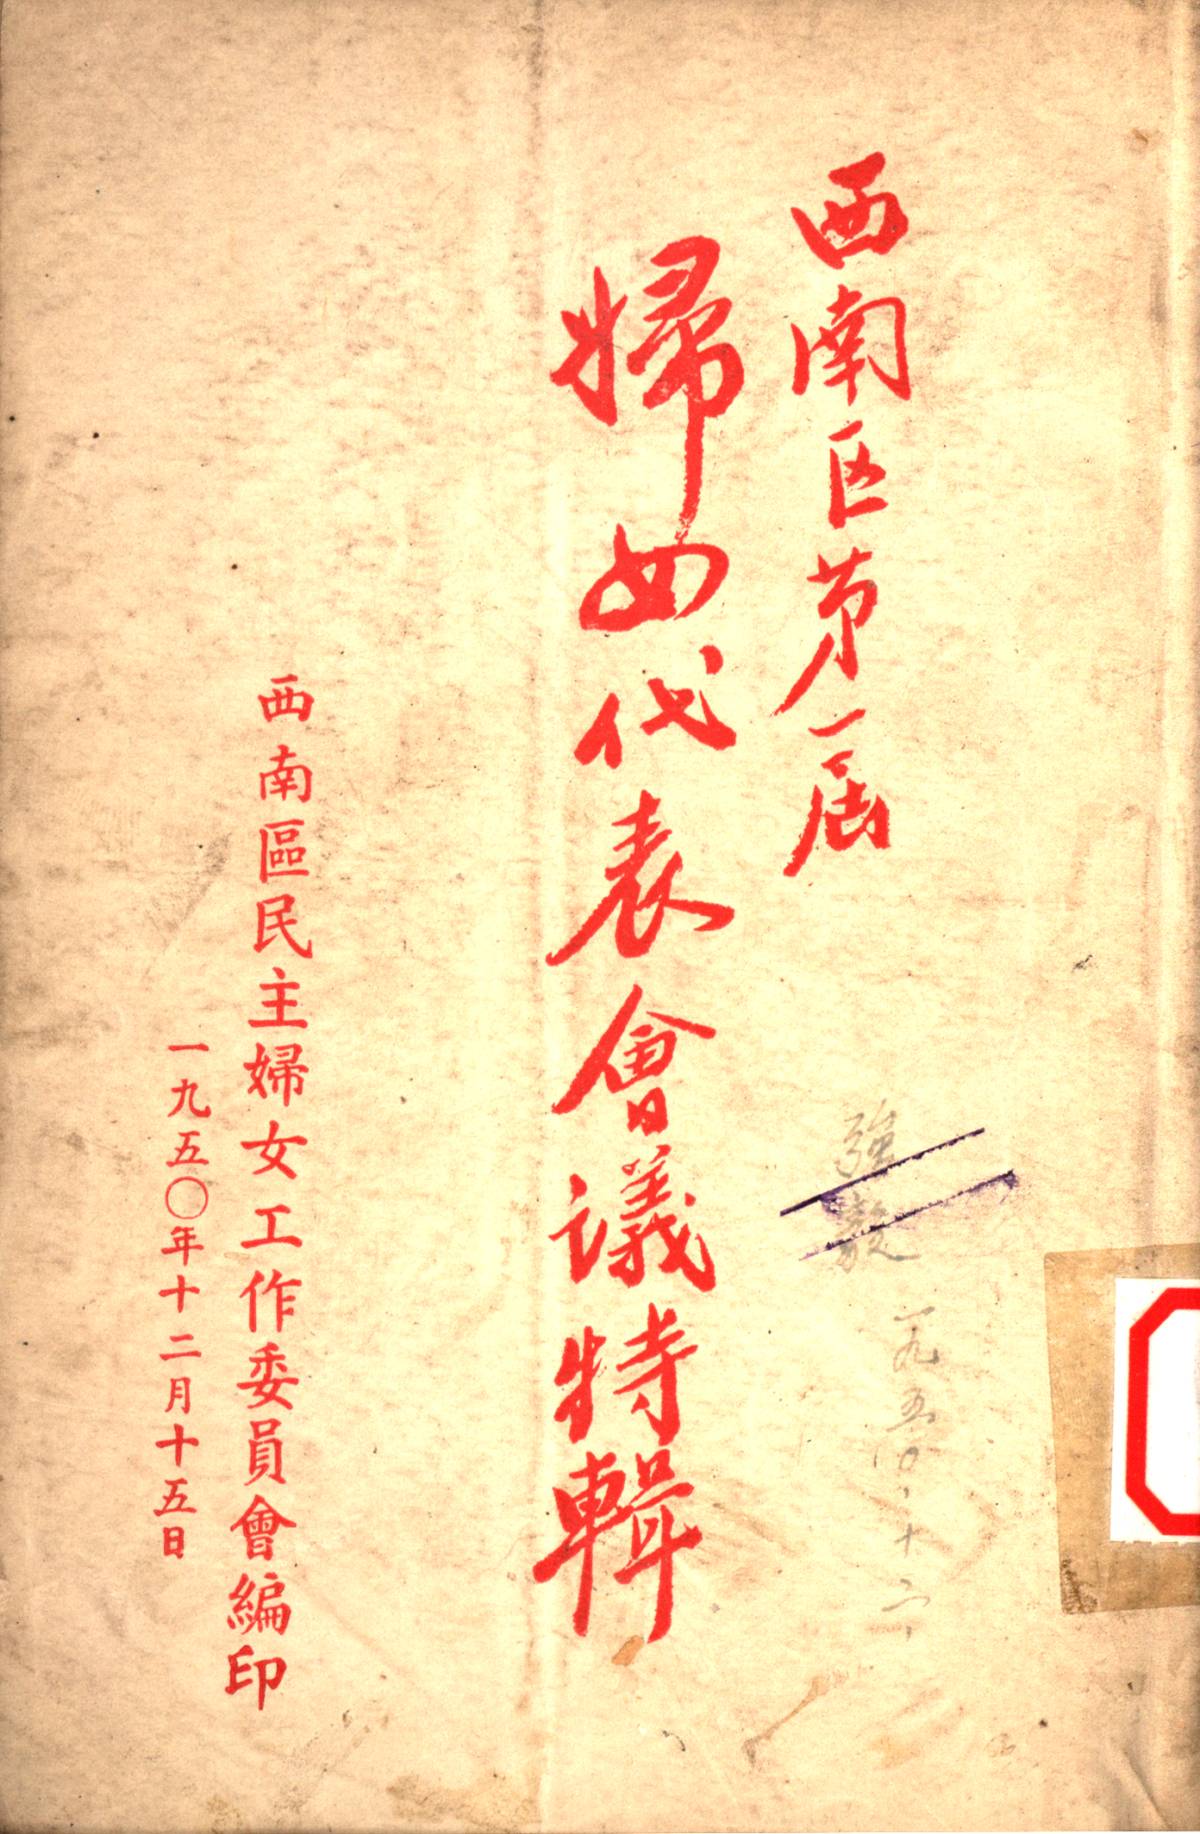 西南区第一届
婦女代表會議特輯
强毅 一九五〇.十二.
西南區民主婦女工作委員會編印
一九五〇年十二月十五日